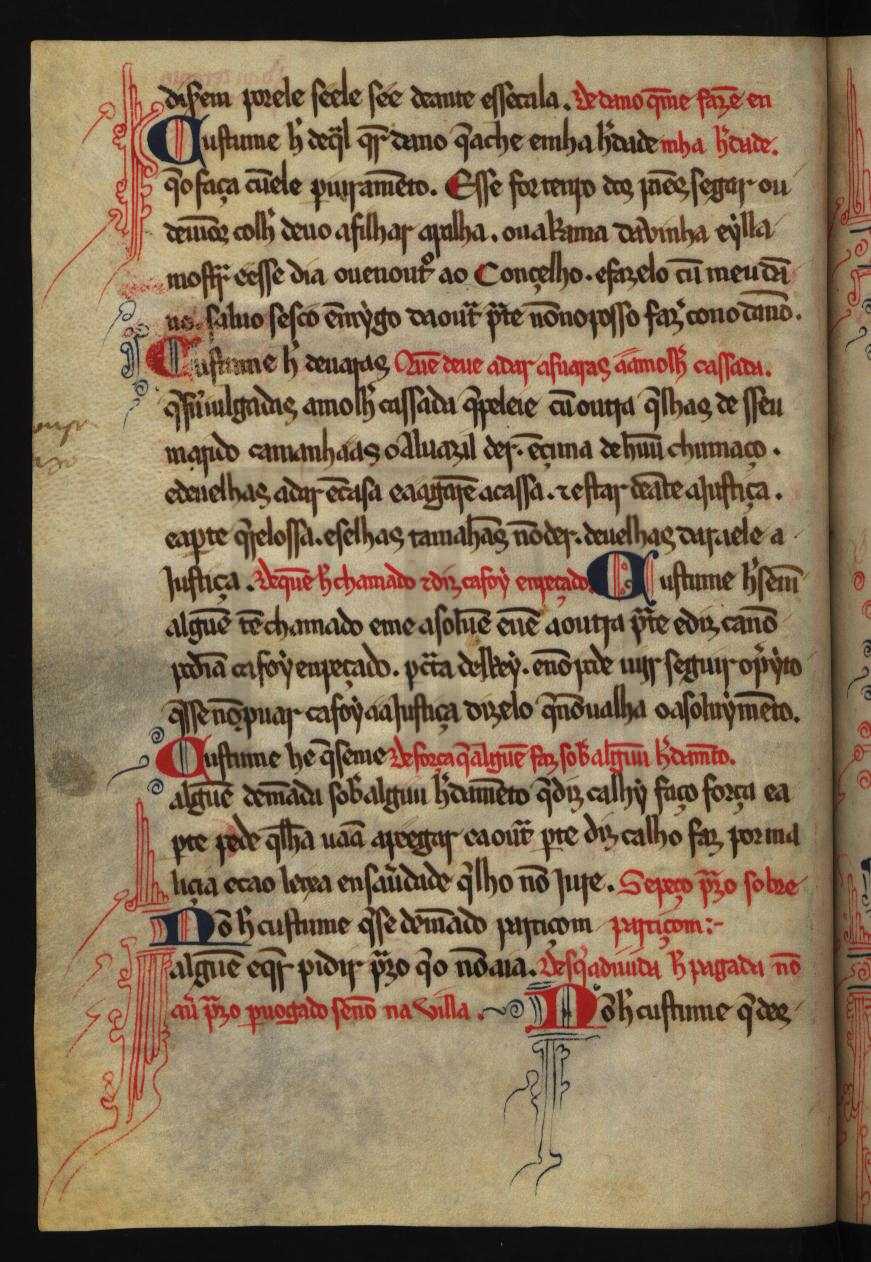 disem por ele seele see deante esseeala. De dano q̄ me fazē en
Custume h̓ deq̄l qr̄ dano q̄ ache em ha h̓dade mha h̓dade.
q̄o faça cū ele p uiramēto. Esse for tenpo dos pāes segar ou
colh̓ deuo afilhar apalha. ou a Rama da vinha e ylla
mostr̄ eesse dia ou en out̄o ao Conçelho. e fazelo cū meu dā
no. saluo se sco ēmijgo da out̄ pr̄te nōno posso faz̓ cono danō.
Custume h̓ de uaras Quē deue a dar as uaras aa molh̓ cassada.
q̄ sū iulgadas a molh̓ cassada q̄ peleie cū outra q̄ lhas de sseu
marido camanhaas o Aluazil der. ēçima de hūu chumaço.
e deuelhas a dar ē casa e aagarē a cassa. ⁊ estar deāte a Justiça.
e a parte q̄relossa. e se lhas tamahās nō der. deuelhas dar a ele a
Justiça. De quē h̓ chamado ⁊ diz ca foy enpeçado Custume h̓ se m̄
alguē tē chamado e me asoluē e uē a outra pr̄te e diz ca nō
podia ca foy enpeçado. p cr̄ta del Rey. e nō pode uijr seguir o pr̓yto
q̄ sse nō puar ca foy a a Justiça dizelo q̄ nō ualha o asoluymēto.
Custume he q̄ se me De força q̄ alguē faz sob̓ alguū h̓damēto.
alguē demāda sob̓ alguu h̓damēto q̄ diz ca lhy faço força e a
pte pede q̄ lha uaā apeegar e a out̄ pte diz ca lho faz por ma
liçia e cao leixa en saūdade q̄ lho nō Jure. Se peço pr̄zo sobre
Nō h̓ custume q̄ se demādo partiçom partiçom:~
alguē e qr̄ pidir pr̄zo q̄o nō aia. Des q̄ a diuida h̓ pagada nō
aū pr̄zo p uogado senō na villa. Nō h̓ custume q̄ des